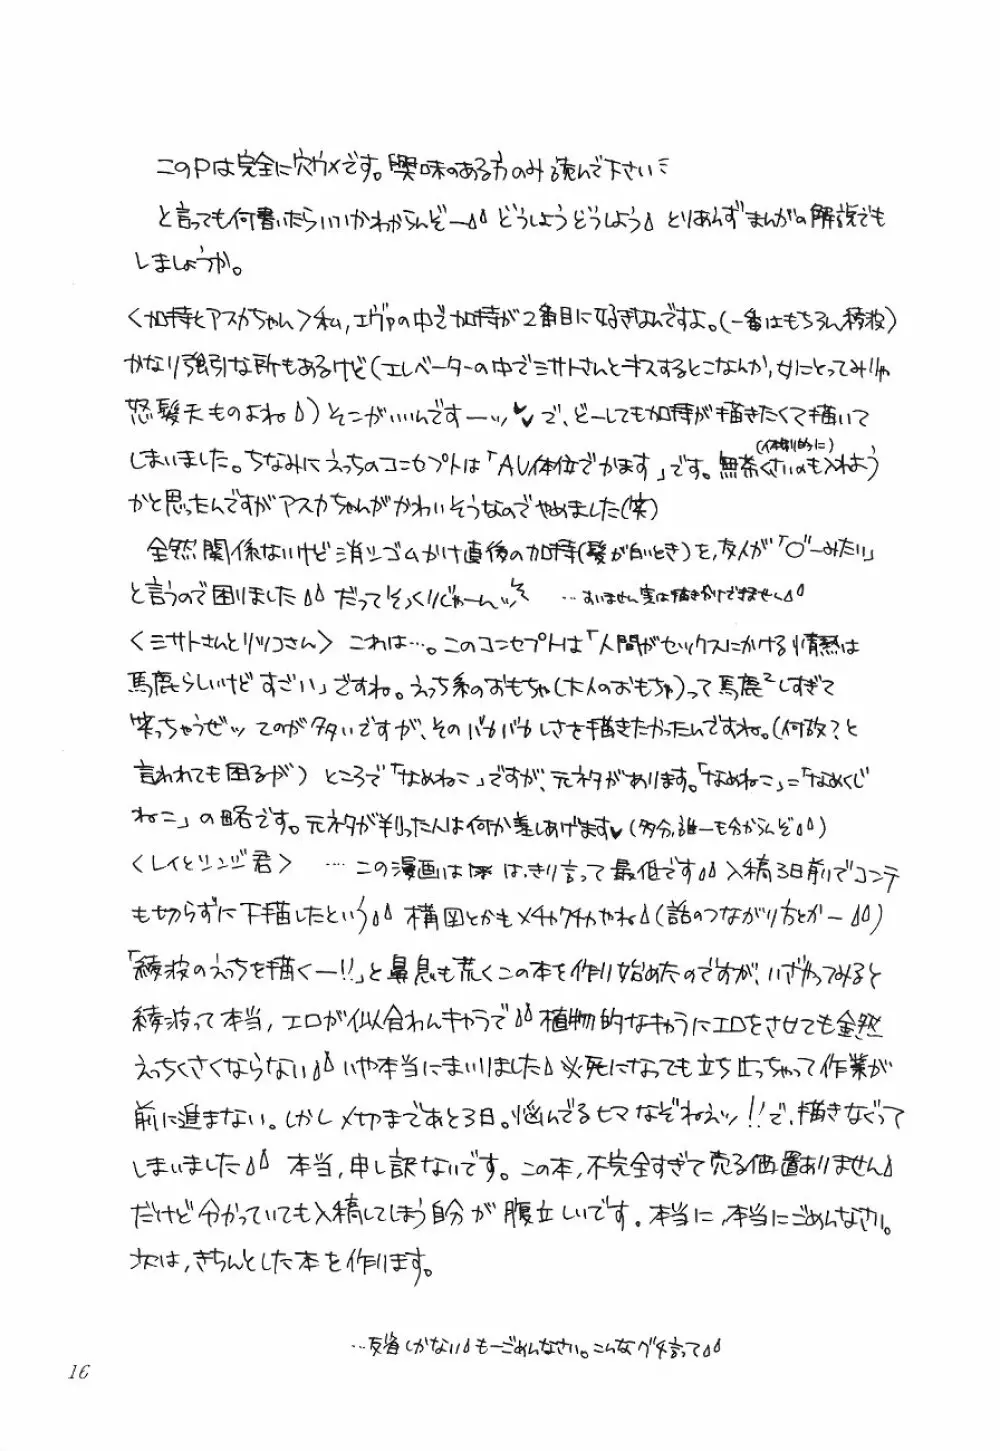 このPは完全に穴ウメです。興味のある方のみ読んで下さい
と言っても何書いたらいいかわからんぞー どうしようどうしよう とりあえずまんがの解説でも
しましょうか。
〈加持とアスカちゃん〉私,エヴァの中で加持が2番目に好きなんですよ。(一番はもちろん綾波)
かなり強引な所もあるけど(エレベーターの中でミサトさんとキスするとこなんか,女にとってみりゃ
怒髪天ものよね)そこがいいんですーッ♥で、どーしても加持が描きたくて描いて
しまいました。ちなみにえっちのコンセプトは「AV体位でかます」です。無茶くさいのも入れよう
(体制的に)
かと思ったんですがアスカちゃんがかわいそうなのでやめました(笑)
全然関係ないけど消シゴムかけ直後の加持(髪が白いとき)を,友人が「 ーみたい」
と言うので困りました だってそっくりじゃーんッ …すいません実は描きかけできません
〈ミサトさんとリツコさん〉 これは…。このコンセプトは「人間がセックスにかける情熱は
馬鹿らしいけどすごい」ですね。えっち系のおもちゃ(大人のおもちゃ)って馬鹿²しすぎて
笑っちゃうぜッ てのが多いですが、そのバカバカしさを描きたかったんですね。(何故?と
言われても困るが) ところで「なめねこ」ですが、元ネタがあります。「なめねこ」=「なめくじ
ねこ」の略です。元ネタが判った人は何か差しあげます♥(多分,誰一も分からんぞ)
〈レイとシンジ君〉 …この漫画は はっきり言って最低です 入稿3日前でコンテ
も切らずに下描したという 構図とかもメチャクチャやね(話のつながり方とかー)
「綾波のえっちを描くー!!」と鼻息も荒くこの本を作り始めたのですが、いざやってみると
綾波って本当,エロが似合わんキャラで 植物的なキャラにエロをさせても全然
えっちくさくならない いや本当にまいりました 必死になっても立ち止っちゃって作業が
前に進まない。しかし〆切まであと3日。悩んでるヒマなぞねえッ!!で、描きなぐって
しまいました 本当,申し訳ないです。この本,不完全すぎて売る価置ありません
だけど分かっていても入稿してしまう自分が腹立しいです。本当に,本当にごめんなさい。
次は,きちんとした本を作ります。
…反省しかない もーごめんなさい。こんなグチ言って
16